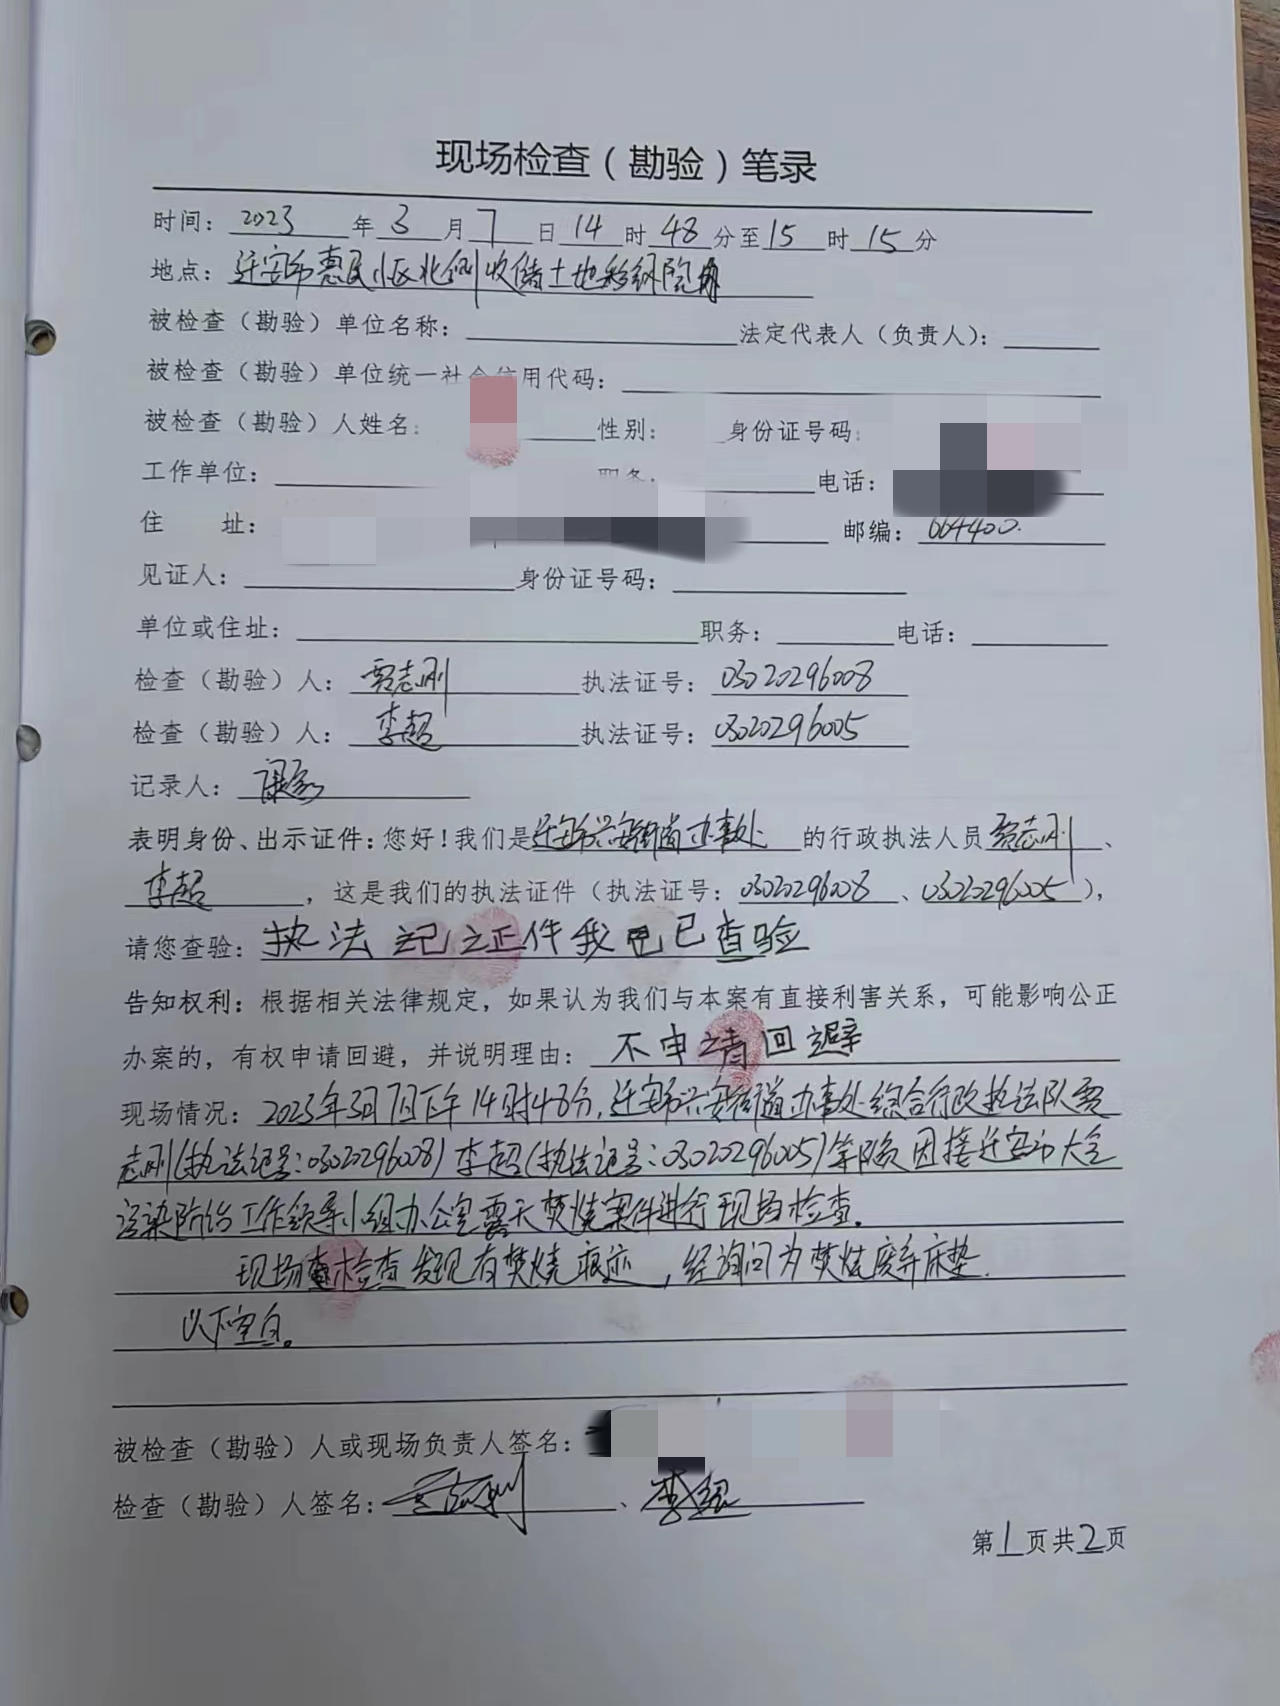 现场检查（勘验）笔录
时间：2023年3月7日14时48分至15时15分
地点：迁安市惠民小区北侧收储土地彩钢院内
被检查（勘验）单位名称：法定代表人（负责人）：
被检查（勘验）单位统一社会信用代码：
被检查（勘验）人姓名：性别：身份证号码：
工作单位：职务：电话：
住 址：邮编：064400.
见证人：身份证号码：
单位或住址：职务：电话：
检查（勘验）人：贾志刚 执法证号：03020296008
检查（勘验）人：李超 执法证号：03020296005
记录人：
表明身份、出示证件：您好！我们是迁安市兴安街道办事处的行政执法人员贾志刚、
李超，这是我们的执法证件（执法证号：03020296008、03020296005），
请您查验：执法记证件我已查验
告知权利：根据相关法律规定，如果认为我们与本案有直接利害关系，可能影响公正
办案的，有权申请回避，并说明理由：不申请回避
现场情况：2023年3月7日下午14时48分，迁安市兴安街道办事处综合行政执法队贾
志刚（执法证号：03020296008）李超（执法证号：03020296005）等队员因接迁安市大气
污染防治工作领导小组办公室露天焚烧案件进行现场检查。
现场检查发现有焚烧痕迹，经询问为焚烧废弃床垫.
以下空白。
被检查（勘验）人或现场负责人签名：
检查（勘验）人签名：贾志刚、李超
第1页共2页